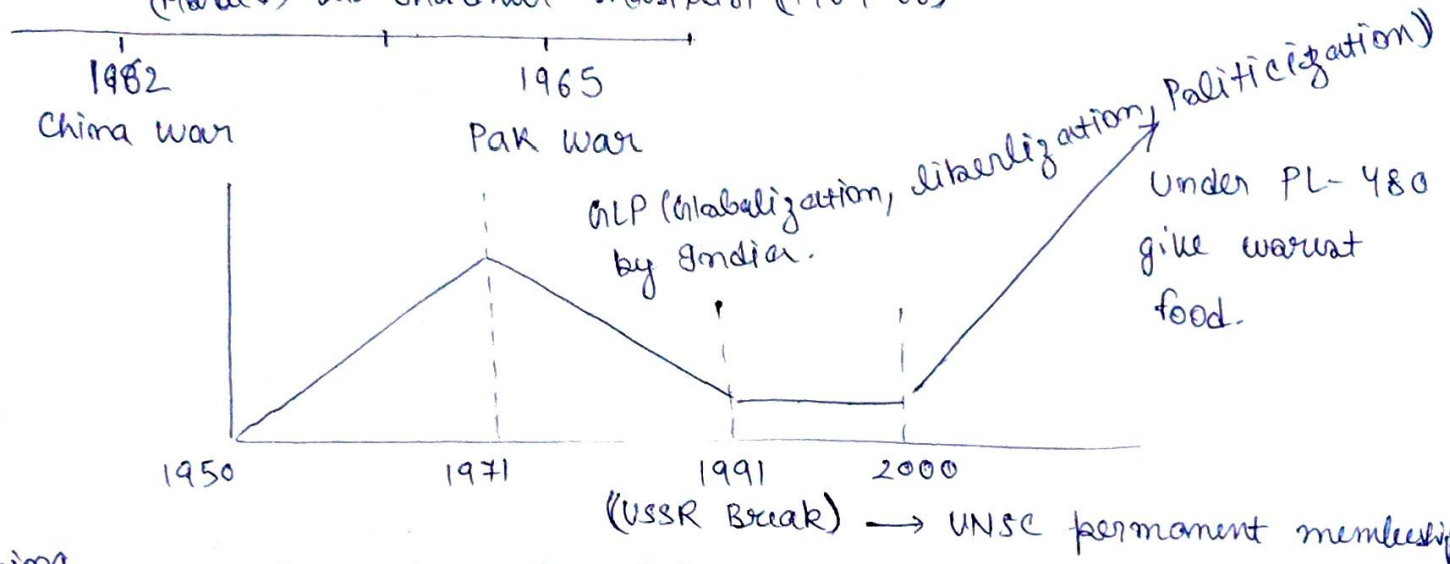 1962 1965
China war Pak war
GLP (Globalization, liberlization, Politicization)
by India.
Under PL-480
give warwat
food.
1950 1971 1991 2000
(USSR Break) → UNSC permanent